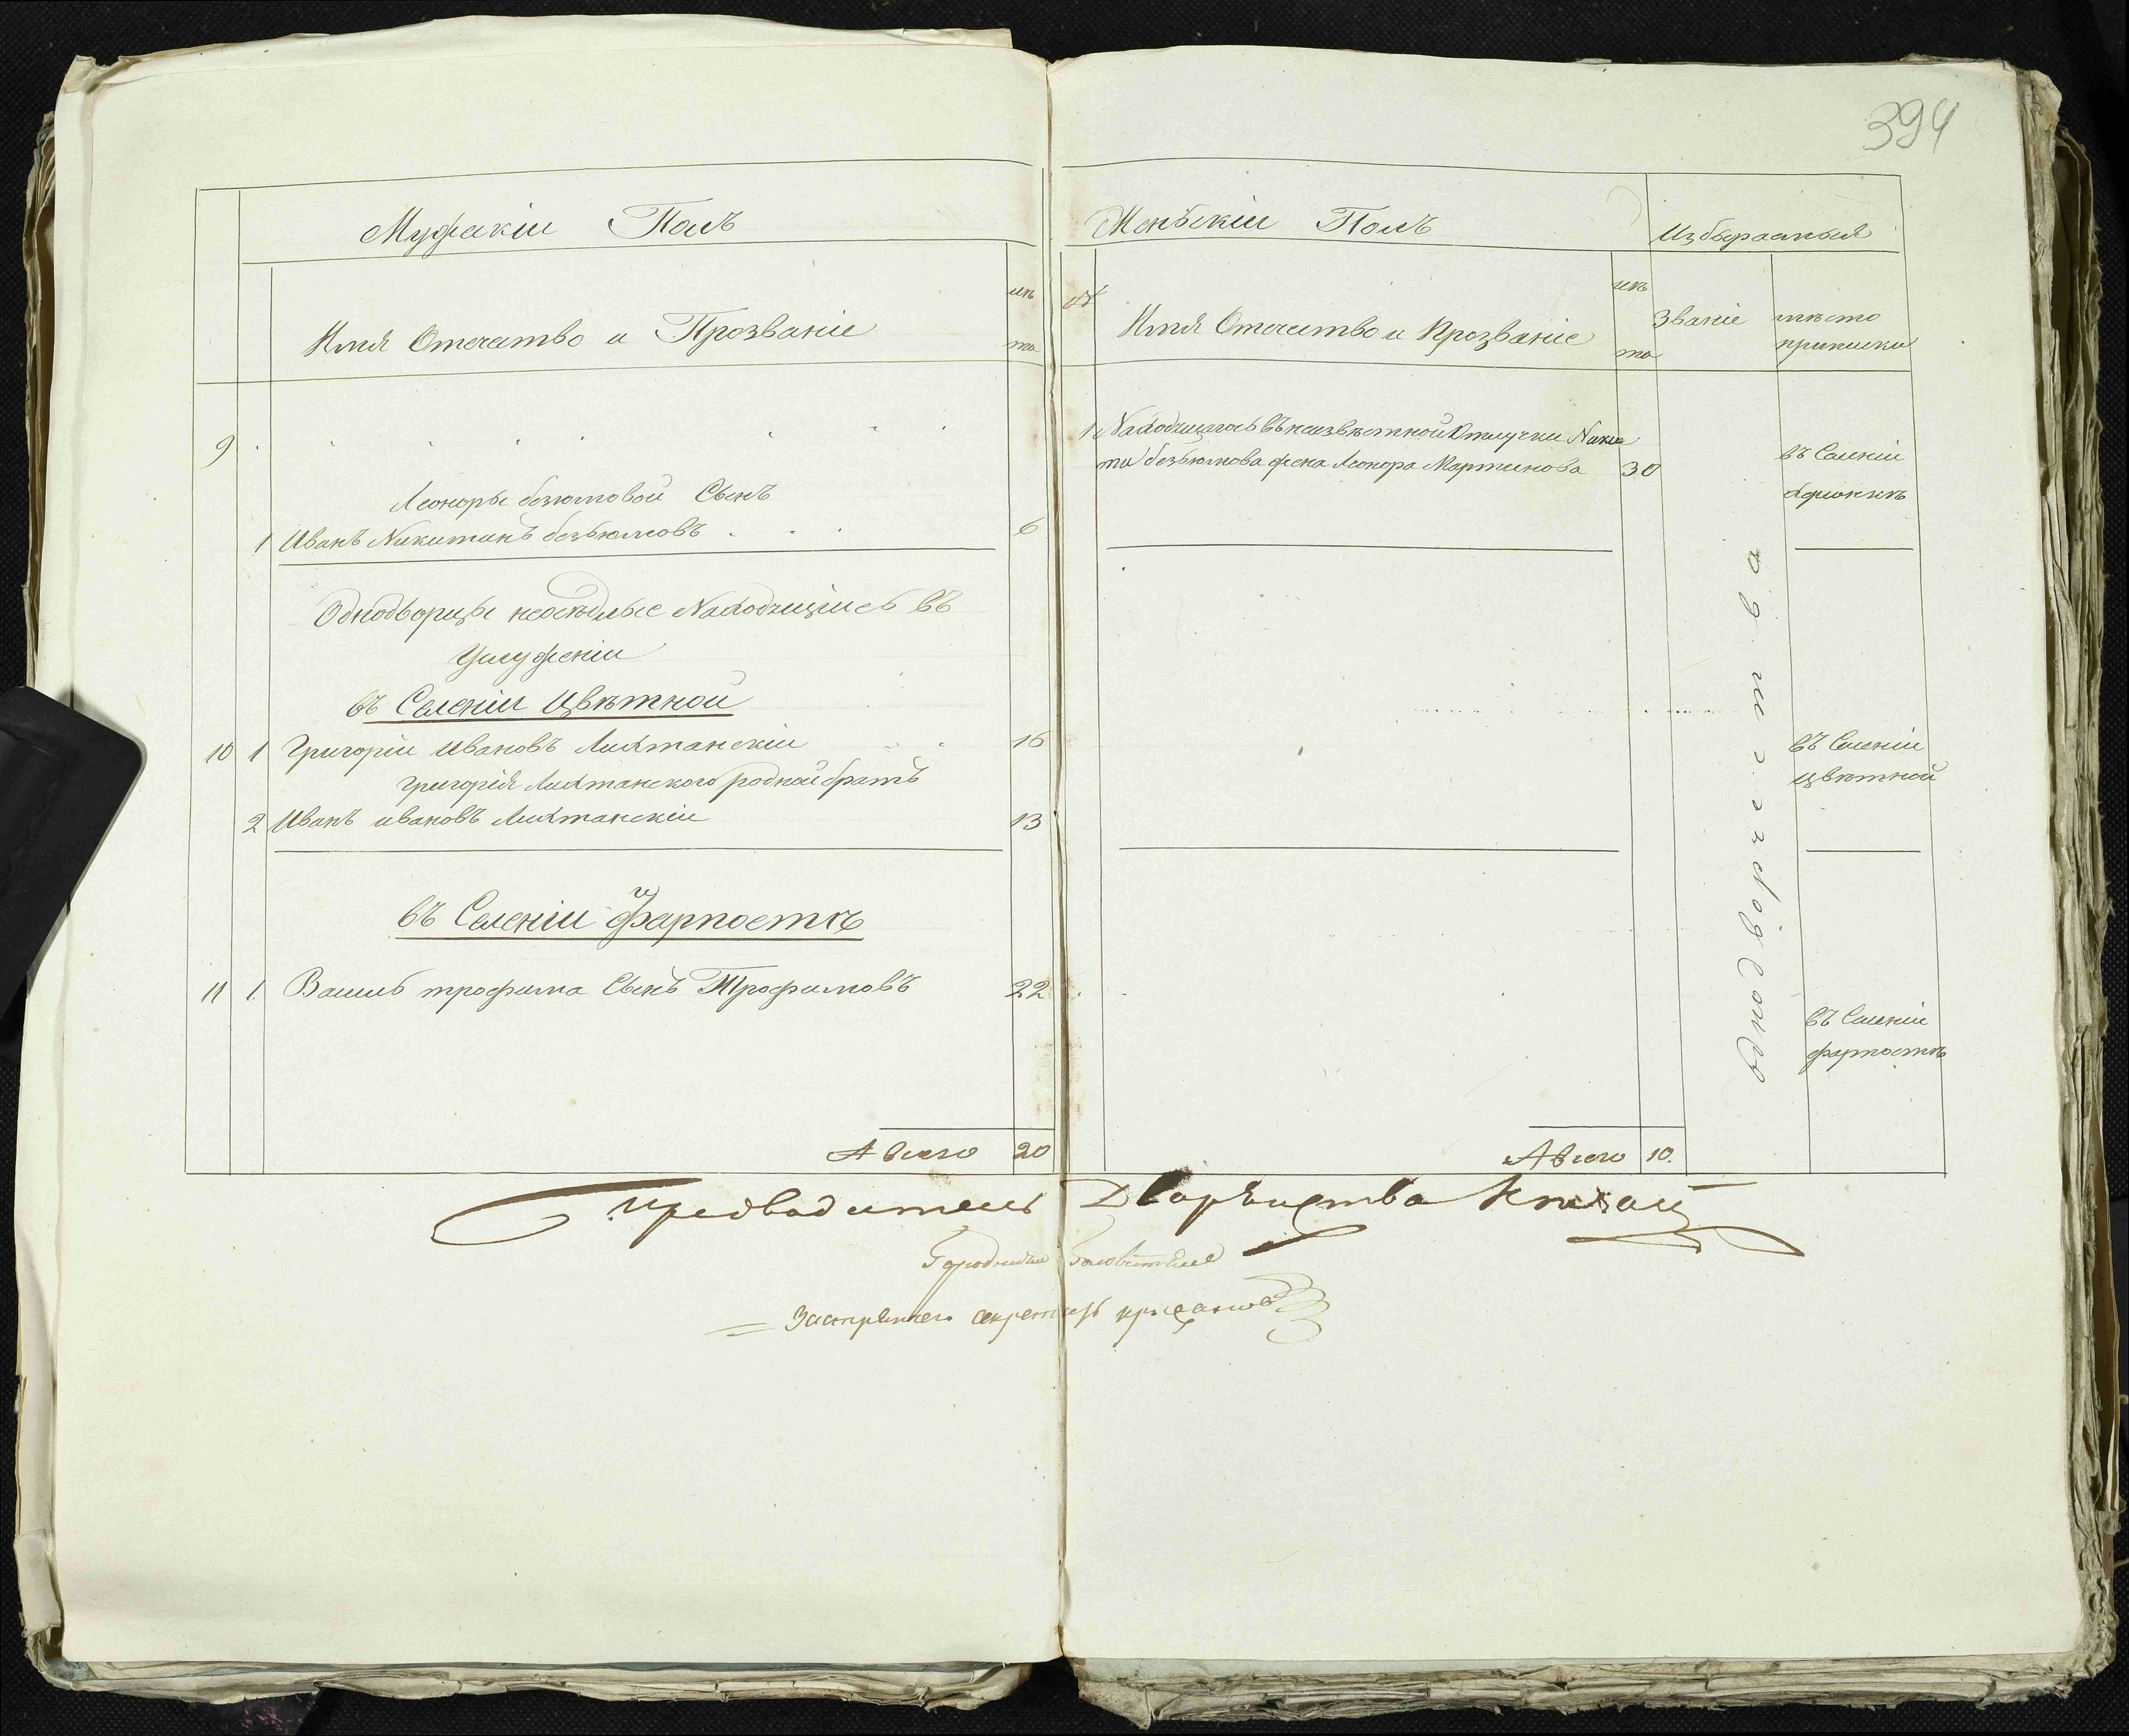 394
Мужскiи Полъ
Имя Отечество и Прозванiе
лѣ
та
9
Леоноры безюмовой Сынъ
1 Иванъ Никитинъ безъюмовъ 6
Однодворцы неосѣдлые Находящiися въ
Услуженiи
въ Селенiи Цвѣтной
10 1 Григорiи Ивановъ Лихтанскiи 16
григорiя Лихтанского родной братъ
2 Иванъ ивановъ Лихтанскiи 13
въ Селенiи Фарпостѣ
11 1. трофима Сынъ Трофимовъ 22
А всего 20
Женьскiи Полъ
№
Имя Отечество и Прозванiе
лѣ
та
Избыранныя
Званiе
мѣсто
приписки
1 Находящагось въ неизвѣстной Отлучки Ники
ты безъюмова жена Леонора Мартинова 30
въ Селенiи
однодворчества
въ Селенiи
цвѣтной
въ Селенiи
фарпостѣ
А всего 10.
Предводитель Дворянства
Городничiи
секретарь